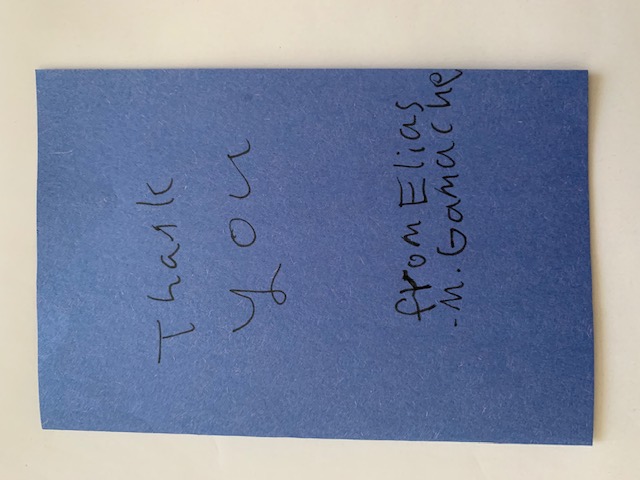 Thank
you
from Elias
-M. Gamache